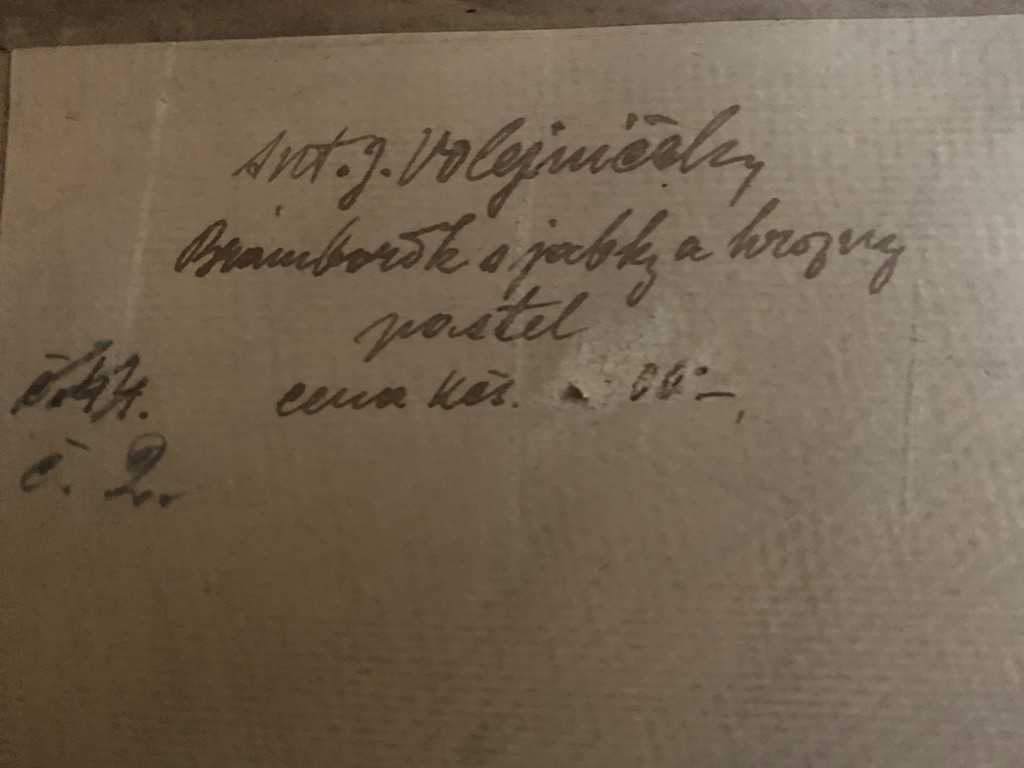 Ant. J. Volejníček,
Bramborřík s jablky a hrozny
pastel
č. 44. cena Kčs. 00·–,
č. 2.